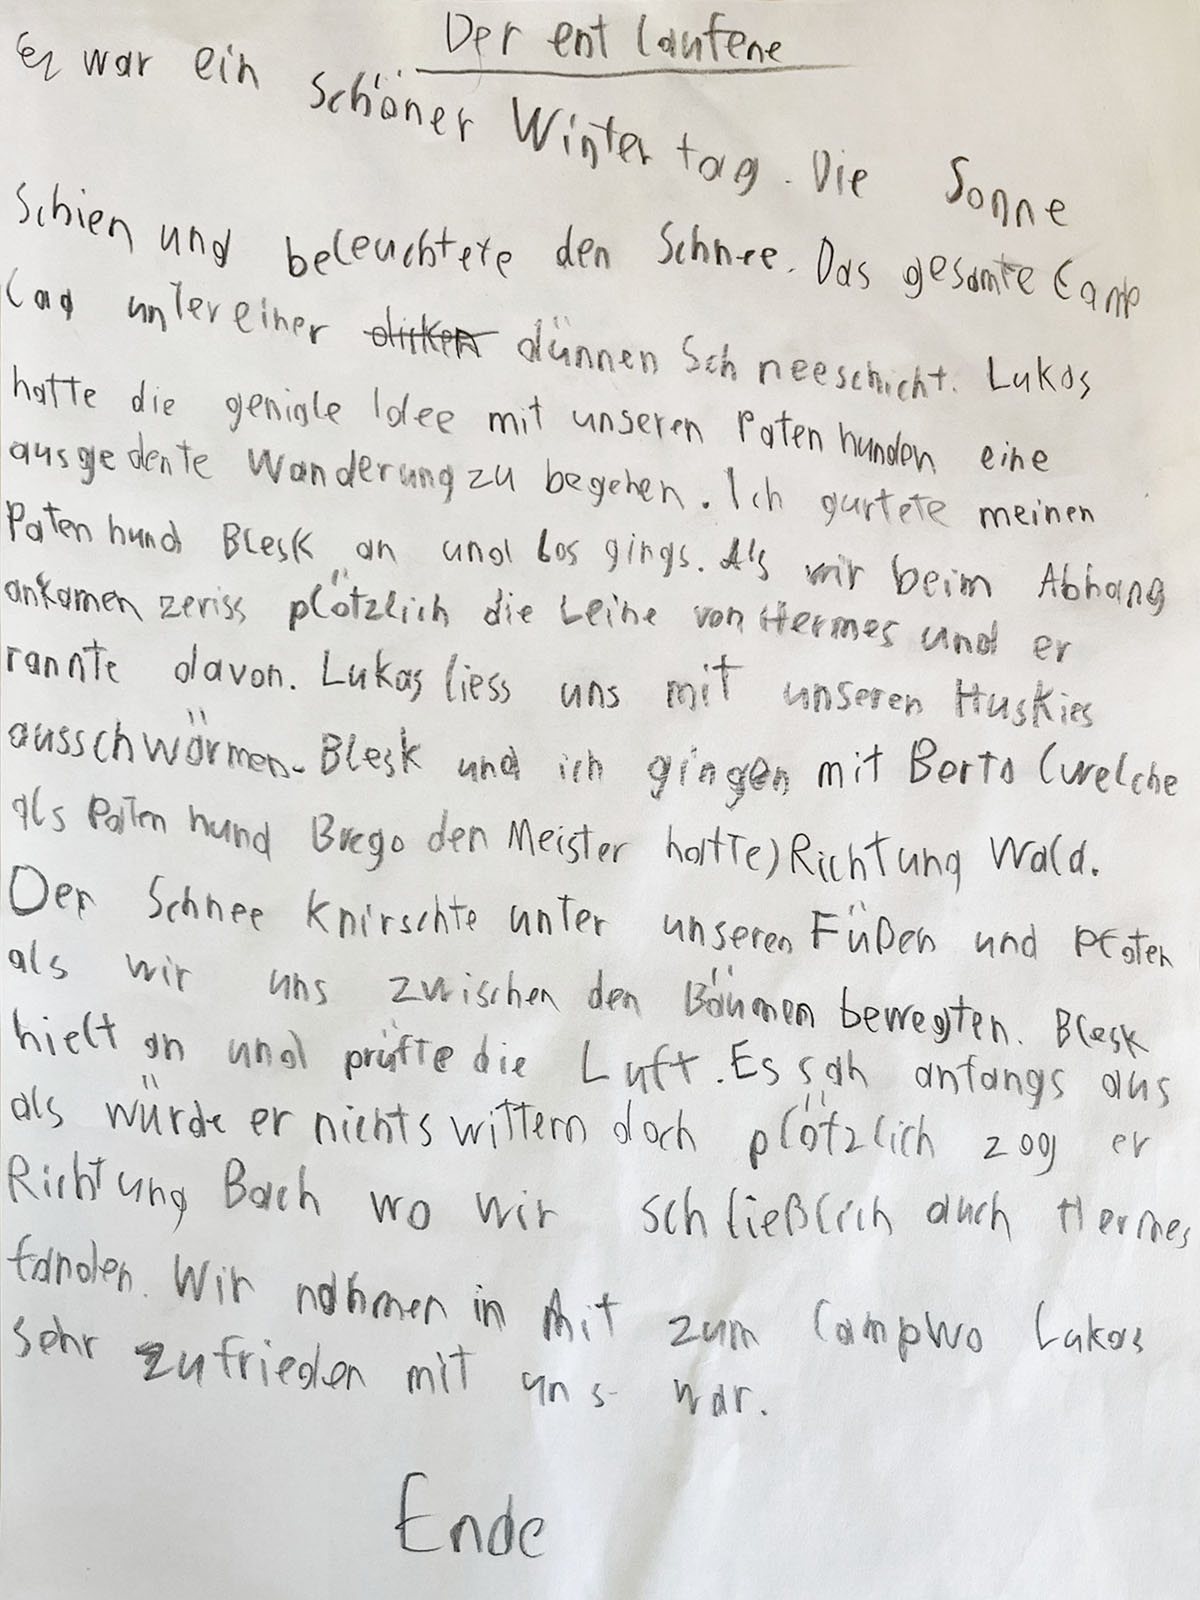 Der ent laufene
Es war ein schöner Winter tag. Die Sonne
Schien und beleuchtete den Schnee. Das gesamte Camp
lag unter einer dicken dünnen Sch neeschicht. Lukas
hatte die geniale Idee mit unseren Paten hunden eine
ausgedente Wanderung zu begehen. Ich gurtete meinen
Paten hund Blesk an und los gings. Als wir beim Abhang
ankamen zeriss plötzlich die Leine von Hermes und er
rannte davon. Lukas liess uns mit unseren Huskies
ausschwärmen. Blesk und ich gingen mit Berta (welche
als Paten hund Brego den Meister hatte) Richtung Wald.
Der Schnee Knirschte unter unseren Füßen und Pfoten
als wir uns zwischen den Bäumen bewegten. Blesk
hielt an und prüfte die Luft. Es sah anfangs aus
als würde er nichts wittern doch plötzlich zog er
Richtung Bach wo wir schließlich auch Hermes
fanden. Wir nahmen in Mit zum Camp wo Lukas
sehr zufrieden mit uns war.
Ende